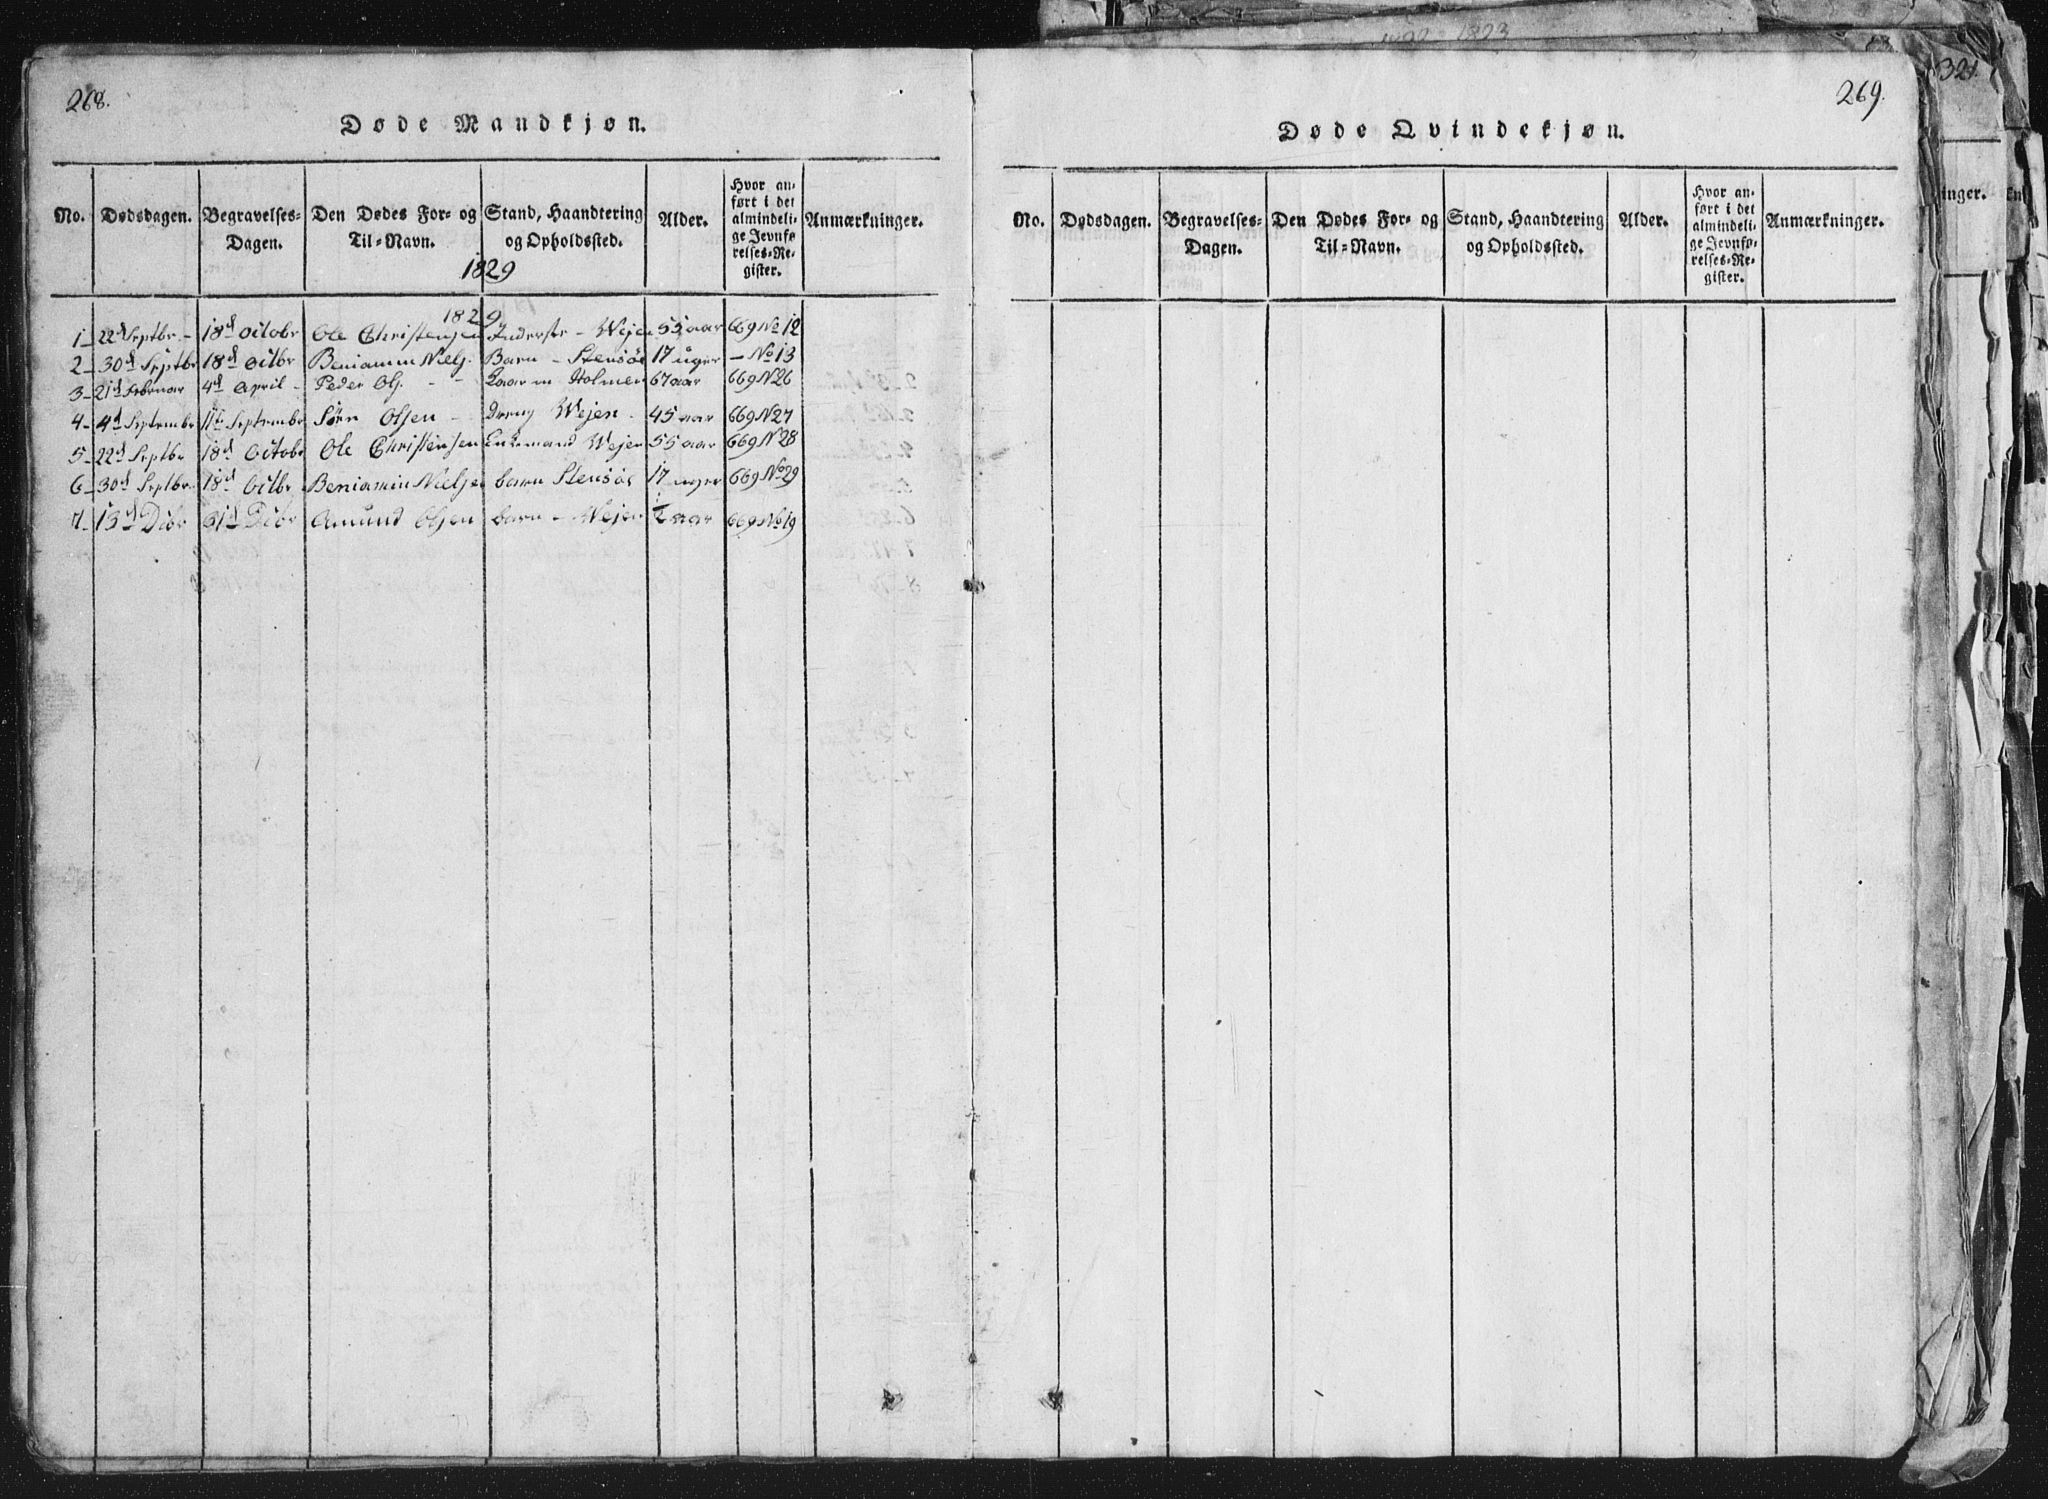 268.
Døde Mandkjøn.
No. | Dødsdagen. | Begravelses-Dagen. | Den Dødes For- og Til-Navn. | Stand, Haandtering og Opholdssted. | Alder. | Hvor anført i det almindelige Jevnførelses-Register. | Anmærkninger.
1829
1829
1 - 22d Septbr - | 18d Octobr | Ole Christensen | Inderste - Wejen | 55 aar | 669 No 12
2 - 30d Septbr | 18d Octbr | Beniamin Nielsj. | Barn - Stensöe | 17 uger | - No 13
3 - 21d Februar | 4d April - | Peder Olj. - - | Holmen | 67 aar | 669 N 26
4 - 4d Septembr | 11te Septembr | Sörn Olsen - | Dreng Wejen - | 45 aar | 669 N 27
5 - 22d Septbr | 18d Octobr | Ole Christensen | Enkemand Wejen | 55 aar | 669 N 28
6 - 30d Septbr | 18d Octbr | Beniamin Nielsen | barn Stensöe | 17 uger | 669 No 29
7 - 13d Dcbr | 31d Dcbr | Amund Olsen | barn - Wejen | 1/2 aar | 669 No 19
269.
Døde Qvindekjøn.
No. | Dødsdagen. | Begravelses-Dagen. | Den Dødes For- og Til-Navn. | Stand, Haandtering og Opholdssted. | Alder. | Hvor anført i det almindelige Jevnførelses-Register. | Anmærkninger.
1823
321.
inger.